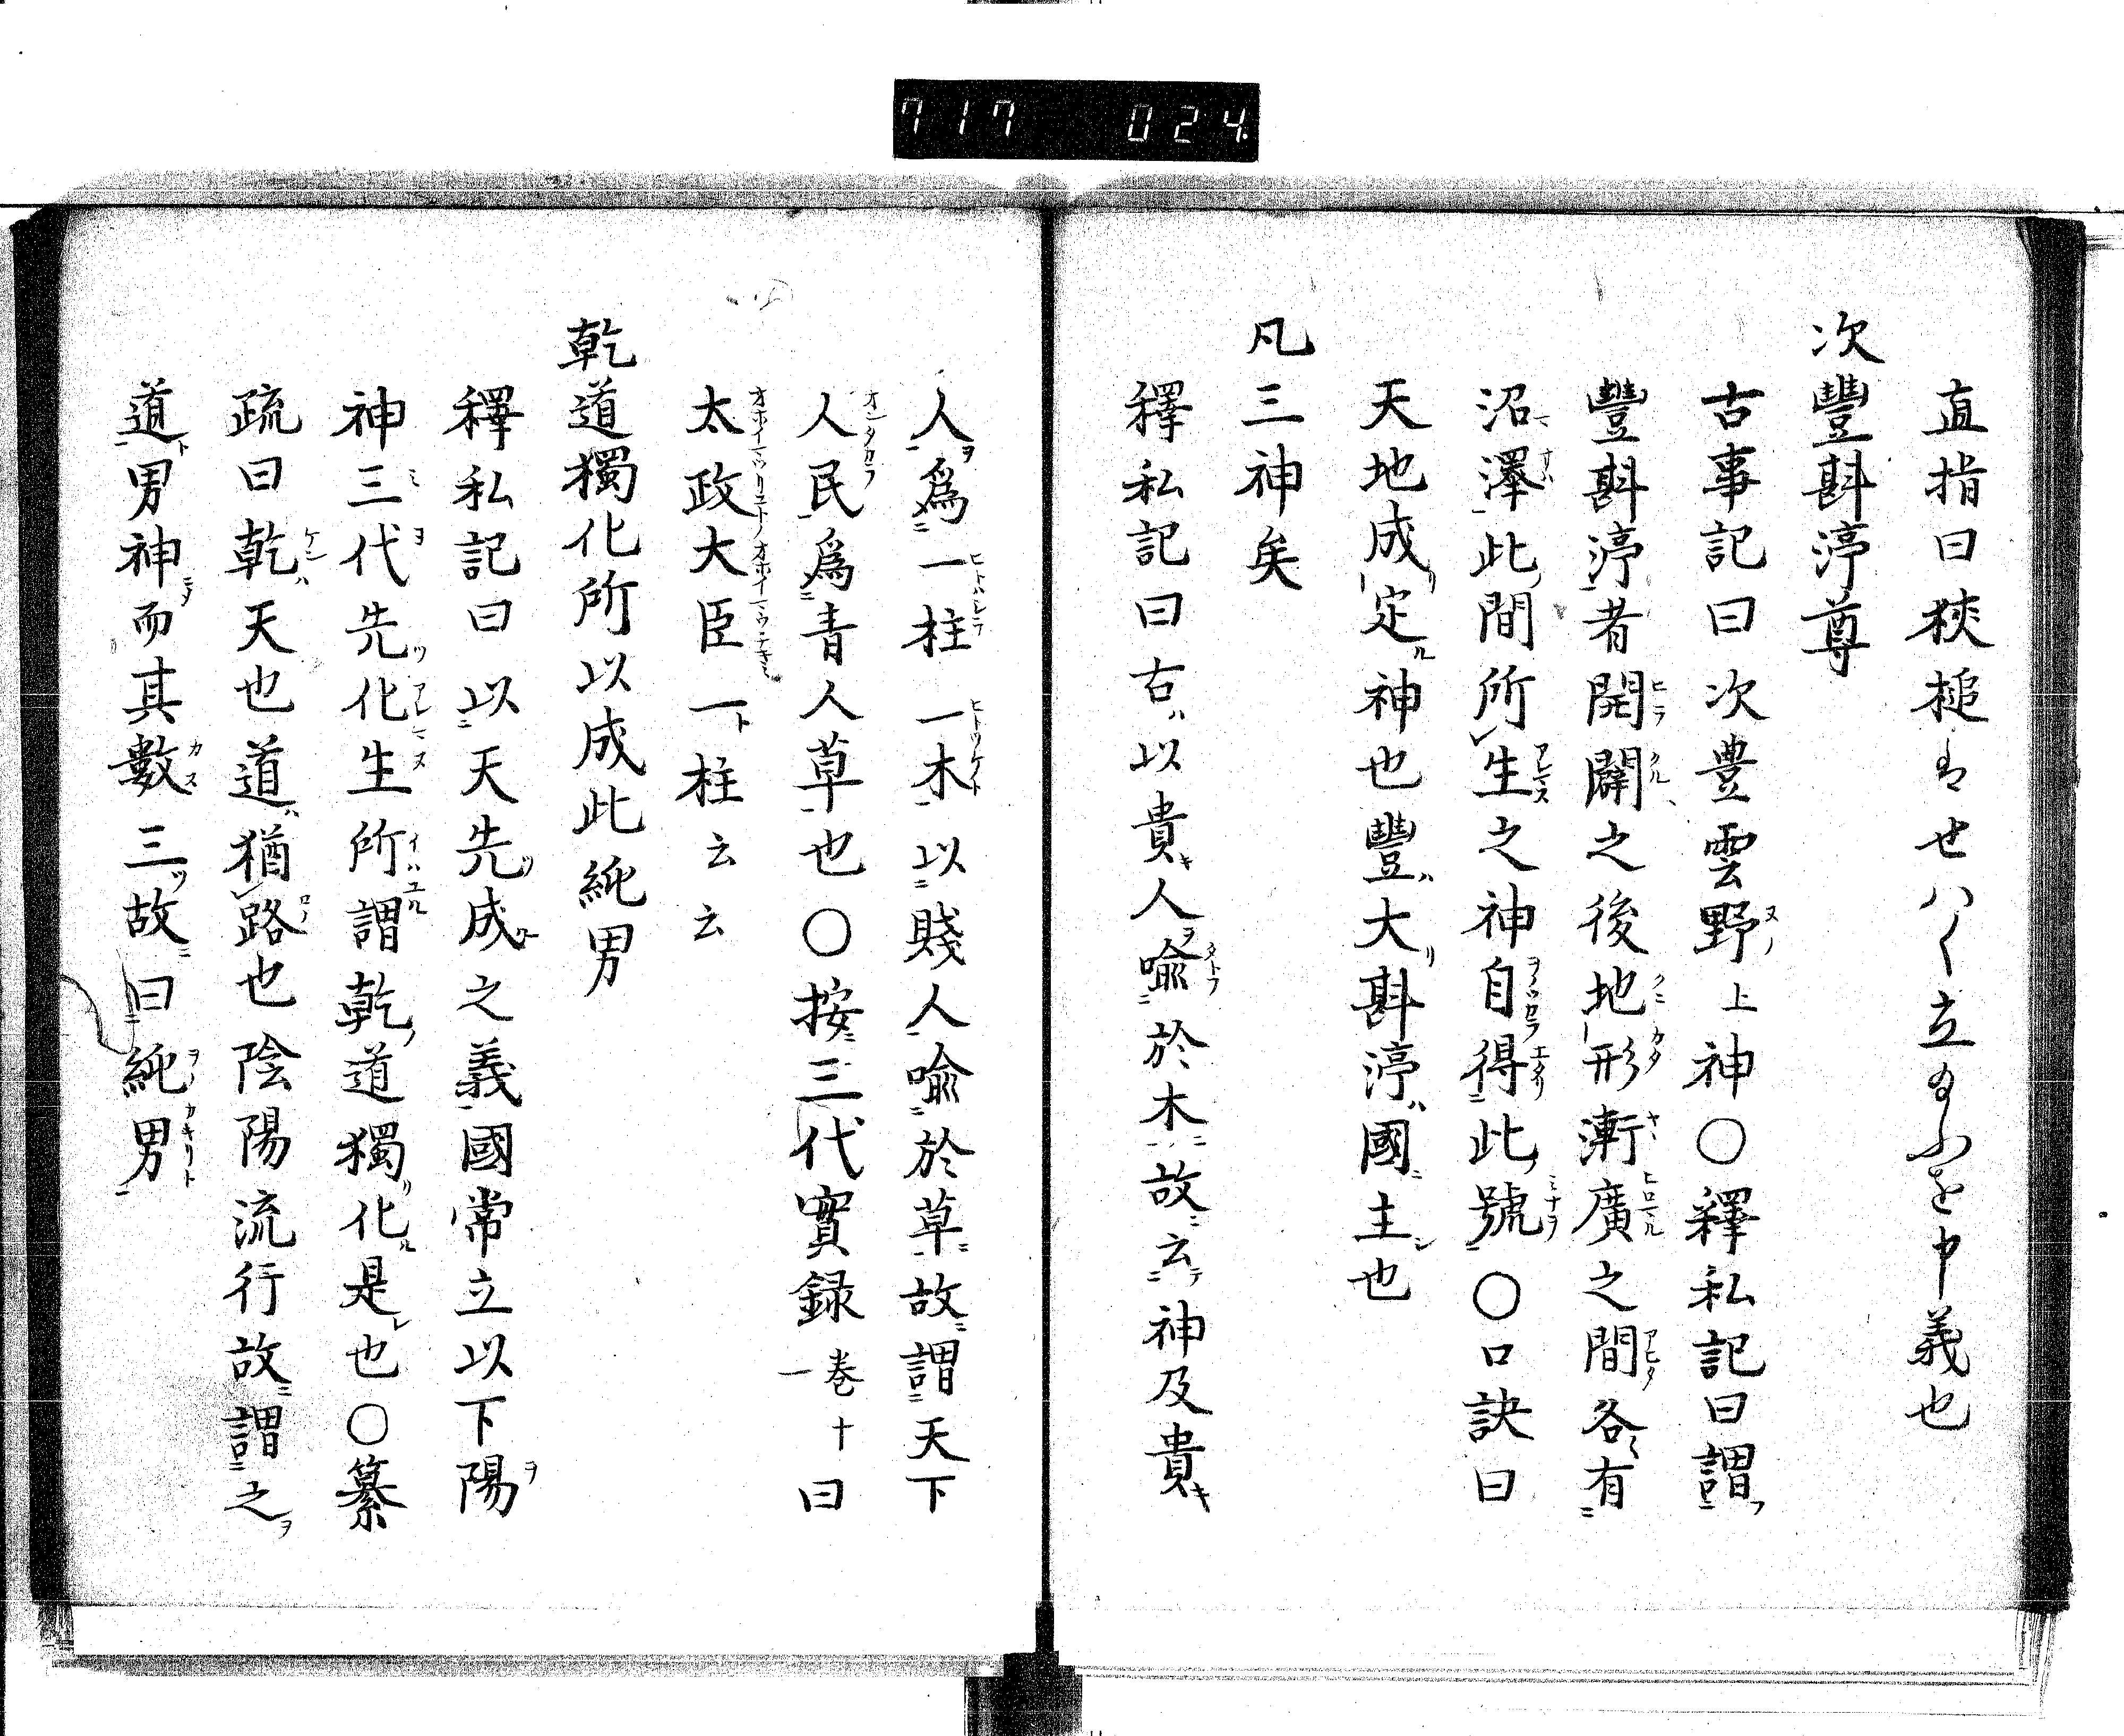 717 024
直指曰狭槌はせハく立るふを申義也
次豐斟渟尊
古事記曰次豊雲野上神〇釋私記曰謂
豐斟渟者開闢之後地形漸廣之間各有
沼澤此間所生之神自得此號〇口訣曰
天地成定神也豐大斟渟國主也
凡三神矣
釋私記曰古以貴人喩於木故云神及貴
人爲一柱一木以賤人喩於草故謂天下
人民爲青人草也〇按三代實録巻十一曰
太政大臣一柱云云
乾道獨化所以成此純男
釋私記曰以天先成之義國常立以下陽
神三代先化生所謂乾道獨化是也〇纂
疏曰乾天也道猶路也陰陽流行故謂之
道男神而其數三故曰純男